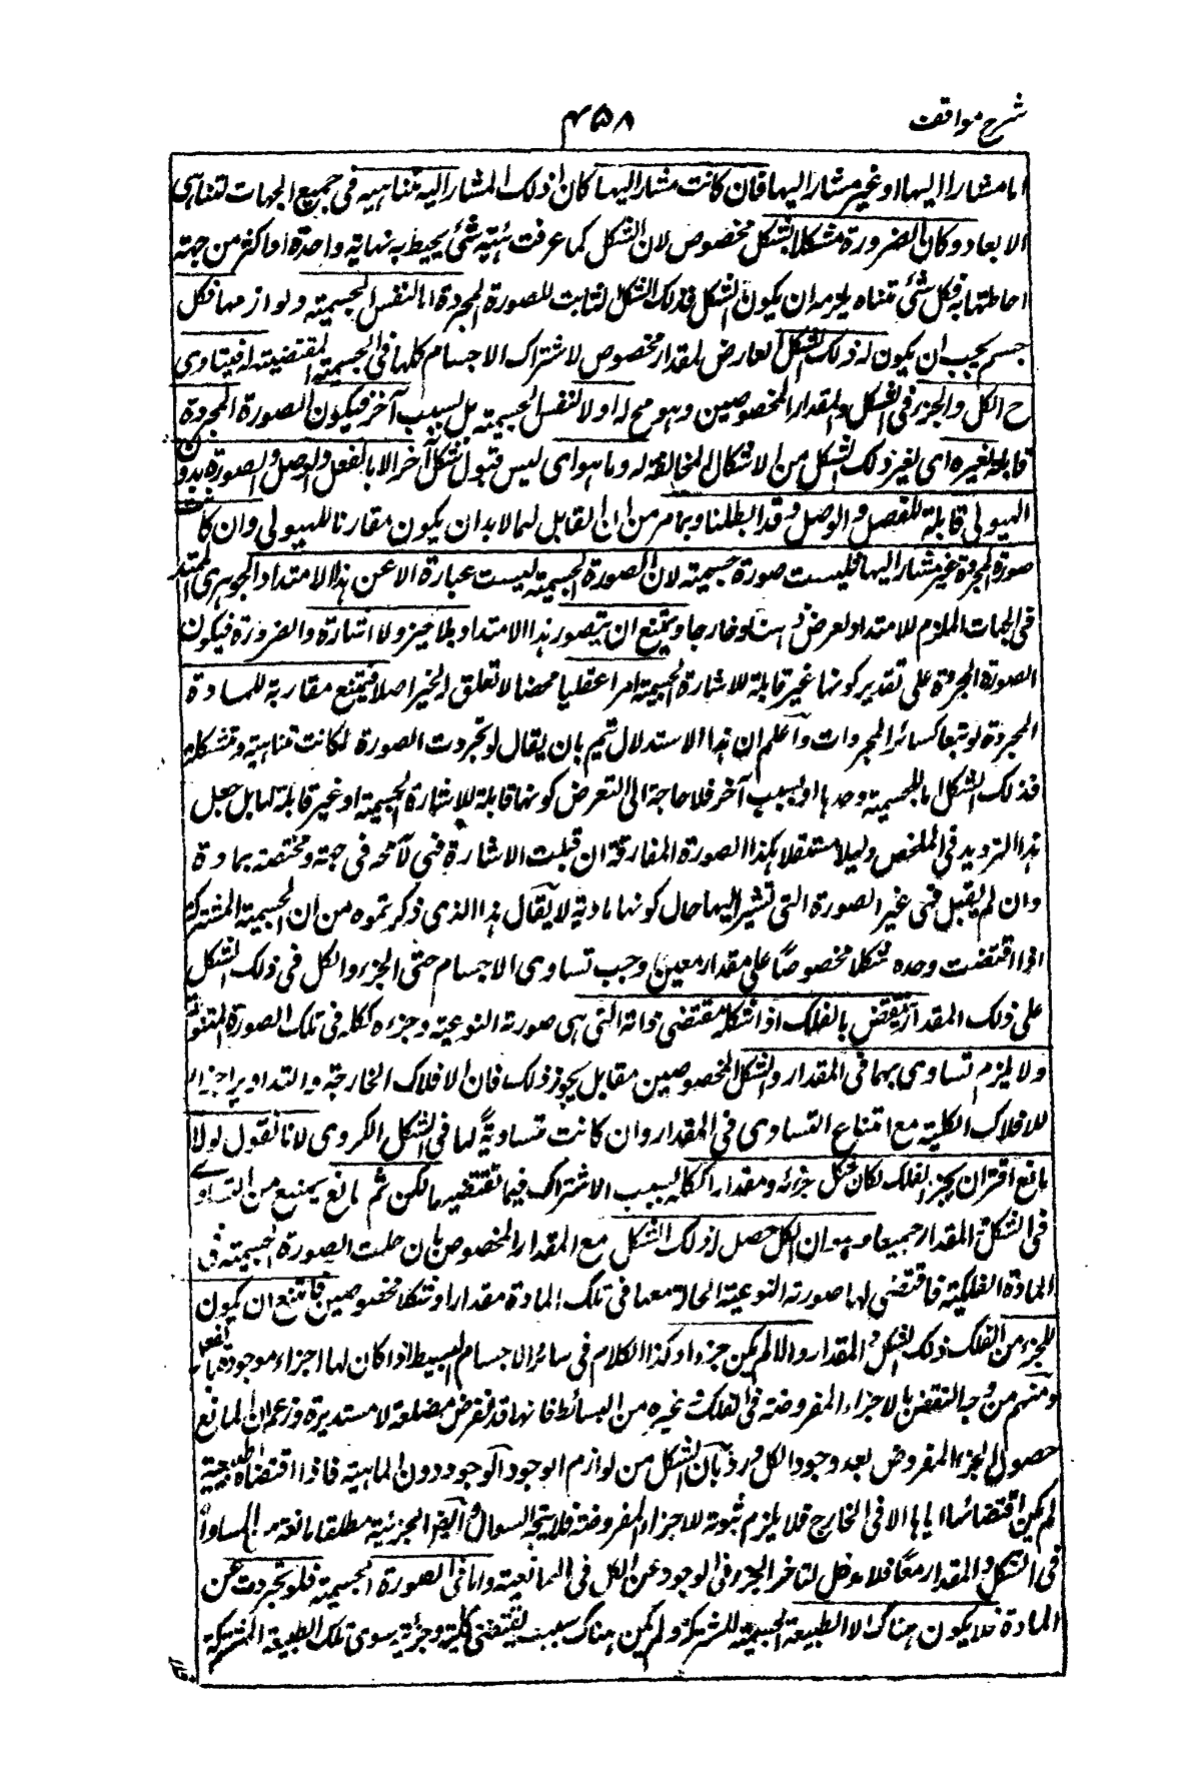 شرح مواقف
۴۵۸
اما مشارا اليها او غير مشار اليها فان كانت مشارا اليها كان اذ ذلك المشار اليه متناهية في جميع الجهات لتناهى
الابعاد وكان بالضرورة مشكلا بشكل مخصوص لان الشكل كما عرفت هيئة شئ يحيط به نهاية واحدة او اكثر من جهة
احاطتها به فكل شئ متناه يلزمه ان يكون الشكل فذلك الشكل الثابت للصورة المجردة اما لنفس الجسمية ولوازمها فكل
جسم يجب ان يكون له ذلك الشكل العارض لمقدار مخصوص لاشتراك الاجسام كلها في الجسمية المقتضية له فيتساوى
ح الكل والجزء في الشكل والمقدار المخصوصين وهو مح له او لا لنفس الجسمية بل لسبب آخر فيكون الصورة المجردة
قابلة لغيره اى لغير ذلك الشكل من الاشكال المخالفة له وما هو اى ليس قبول شكل آخر الا بالفعل والوصل والصورة بدون
الهيولى قابلة للفصل والوصل وقد ابطلنا وبما مر من ان القابل لهما لا بد ان يكون مقارنا للهيولى وان كانت
صورة المجردة غير مشار اليها فليست صورة جسمية لان الصورة الجسمية ليست عبارة الا عن هذا الامتداد الجوهرى الممتد
في الجهات الملزم للامتداد لعرض ذهنا وخارجا ويمتنع ان يتصور هذا الامتداد بلا حيز ولا اشارة والضرورة فيكون
الصورة المجردة على تقدير كونها غير قابلة للاشارة الجسمية امرا عقليا محضا لا تعلق له بحيز اصلا فيمتنع مقارنة للمادة
المجردة لو تبعا كسائر المجردات وآعلم ان هذا الاستدلال يتم بان يقال لو تجردت الصورة لكانت متناهية ومتشكلة
فذلك الشكل اما للجسمية وحدها او لسبب آخر فلا حاجة الى التعرض كونها قابلة للاشارة الجسمية او غير قابلة لها بل جعل
هذا الترديد في الملخص دليلا مستقلا هكذا الصورة المفارقة ان قبلت الاشارة فهى لا محة في جهة ومختصة بمادة
وان لم يقبل فهى غير الصورة التى تشير اليها حال كونها مادية لا يقال هذا الذى ذكرتموه من ان الجسمية المشتركة
اذا اقتضت وحده شكلا مخصوصًا على مقدار معين وجب تساوى الاجسام حتى الجزء والكل في ذلك الشكل
على ذلك المقدار ينتقض بالفلك اذ شكله مقتضى ذاته التى هى صورته النوعية وجزءه ككله في تلك الصورة النوعية
ولا يلزم تساوى بهما في المقدار والشكل المخصوصين مقابل يجوز ذلك فان الافلاك الخارجة والتداوير اجزاء
للافلاك الكلية مع امتناع التساوى في المقدار وان كانت متساويةً لها في الشكل الكروى لانا نقول لولا
مانع اقترن بجزء الفلك لكان شكل جزئه ومقداره ككله بسبب الاشتراك فيما تقتضيهما لكن ثم مانع يمنع من التساوى
في الشكل والمقدار جميعا وهو ان الكل حصل له ذلك الشكل مع المقدار المخصوص بان حلت الصورة الجسمية في
المادة الفلكية فاقتضى لها صورته النوعية الحالة معها في تلك المادة مقدارا وشكلا مخصوصين فامتنع ان يكون
للجزء من الفلك ذلك الشكل والمقدار والا لم يكن جزءا وكذا الكلام في سائر الاجسام البسيط اذا كان لها اجزاء موجودة بالفعل
ومنهم من وجه النقض بالاجزاء المفروضة في الفلك وغيره من البسائط فانها قد تفرض مضلعة لا مستديرة وزعم ان المانع
حصول الجزء المفروض بعد وجود الكل ورد بان الشكل من لوازم الوجود الوجود دون الماهية فاذا اقتضاه طبيعية
لم يكن اقتضائها اياها الا في الخارج فلا يلزم ثبوته للاجزاء المفروضة فلا يتجه السوال وايضا الجزئية مطلقا مانعة من المساواة
في الشكل والمقدار معًا فلا مدخل لتاخر الجزء في الوجود عن الكل في المانعية واما في الصورة الجسمية فلو تجردت عن
المادة فلا يكون هناك الا الطبيعة الجسمية المشتركة ولم يكن هناك سبب يقتضى كلية وجزئية سوى تلك الطبيعة المشتركة